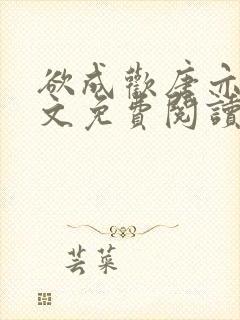 欲成歡唐亦
文免費閱讀
芸菜